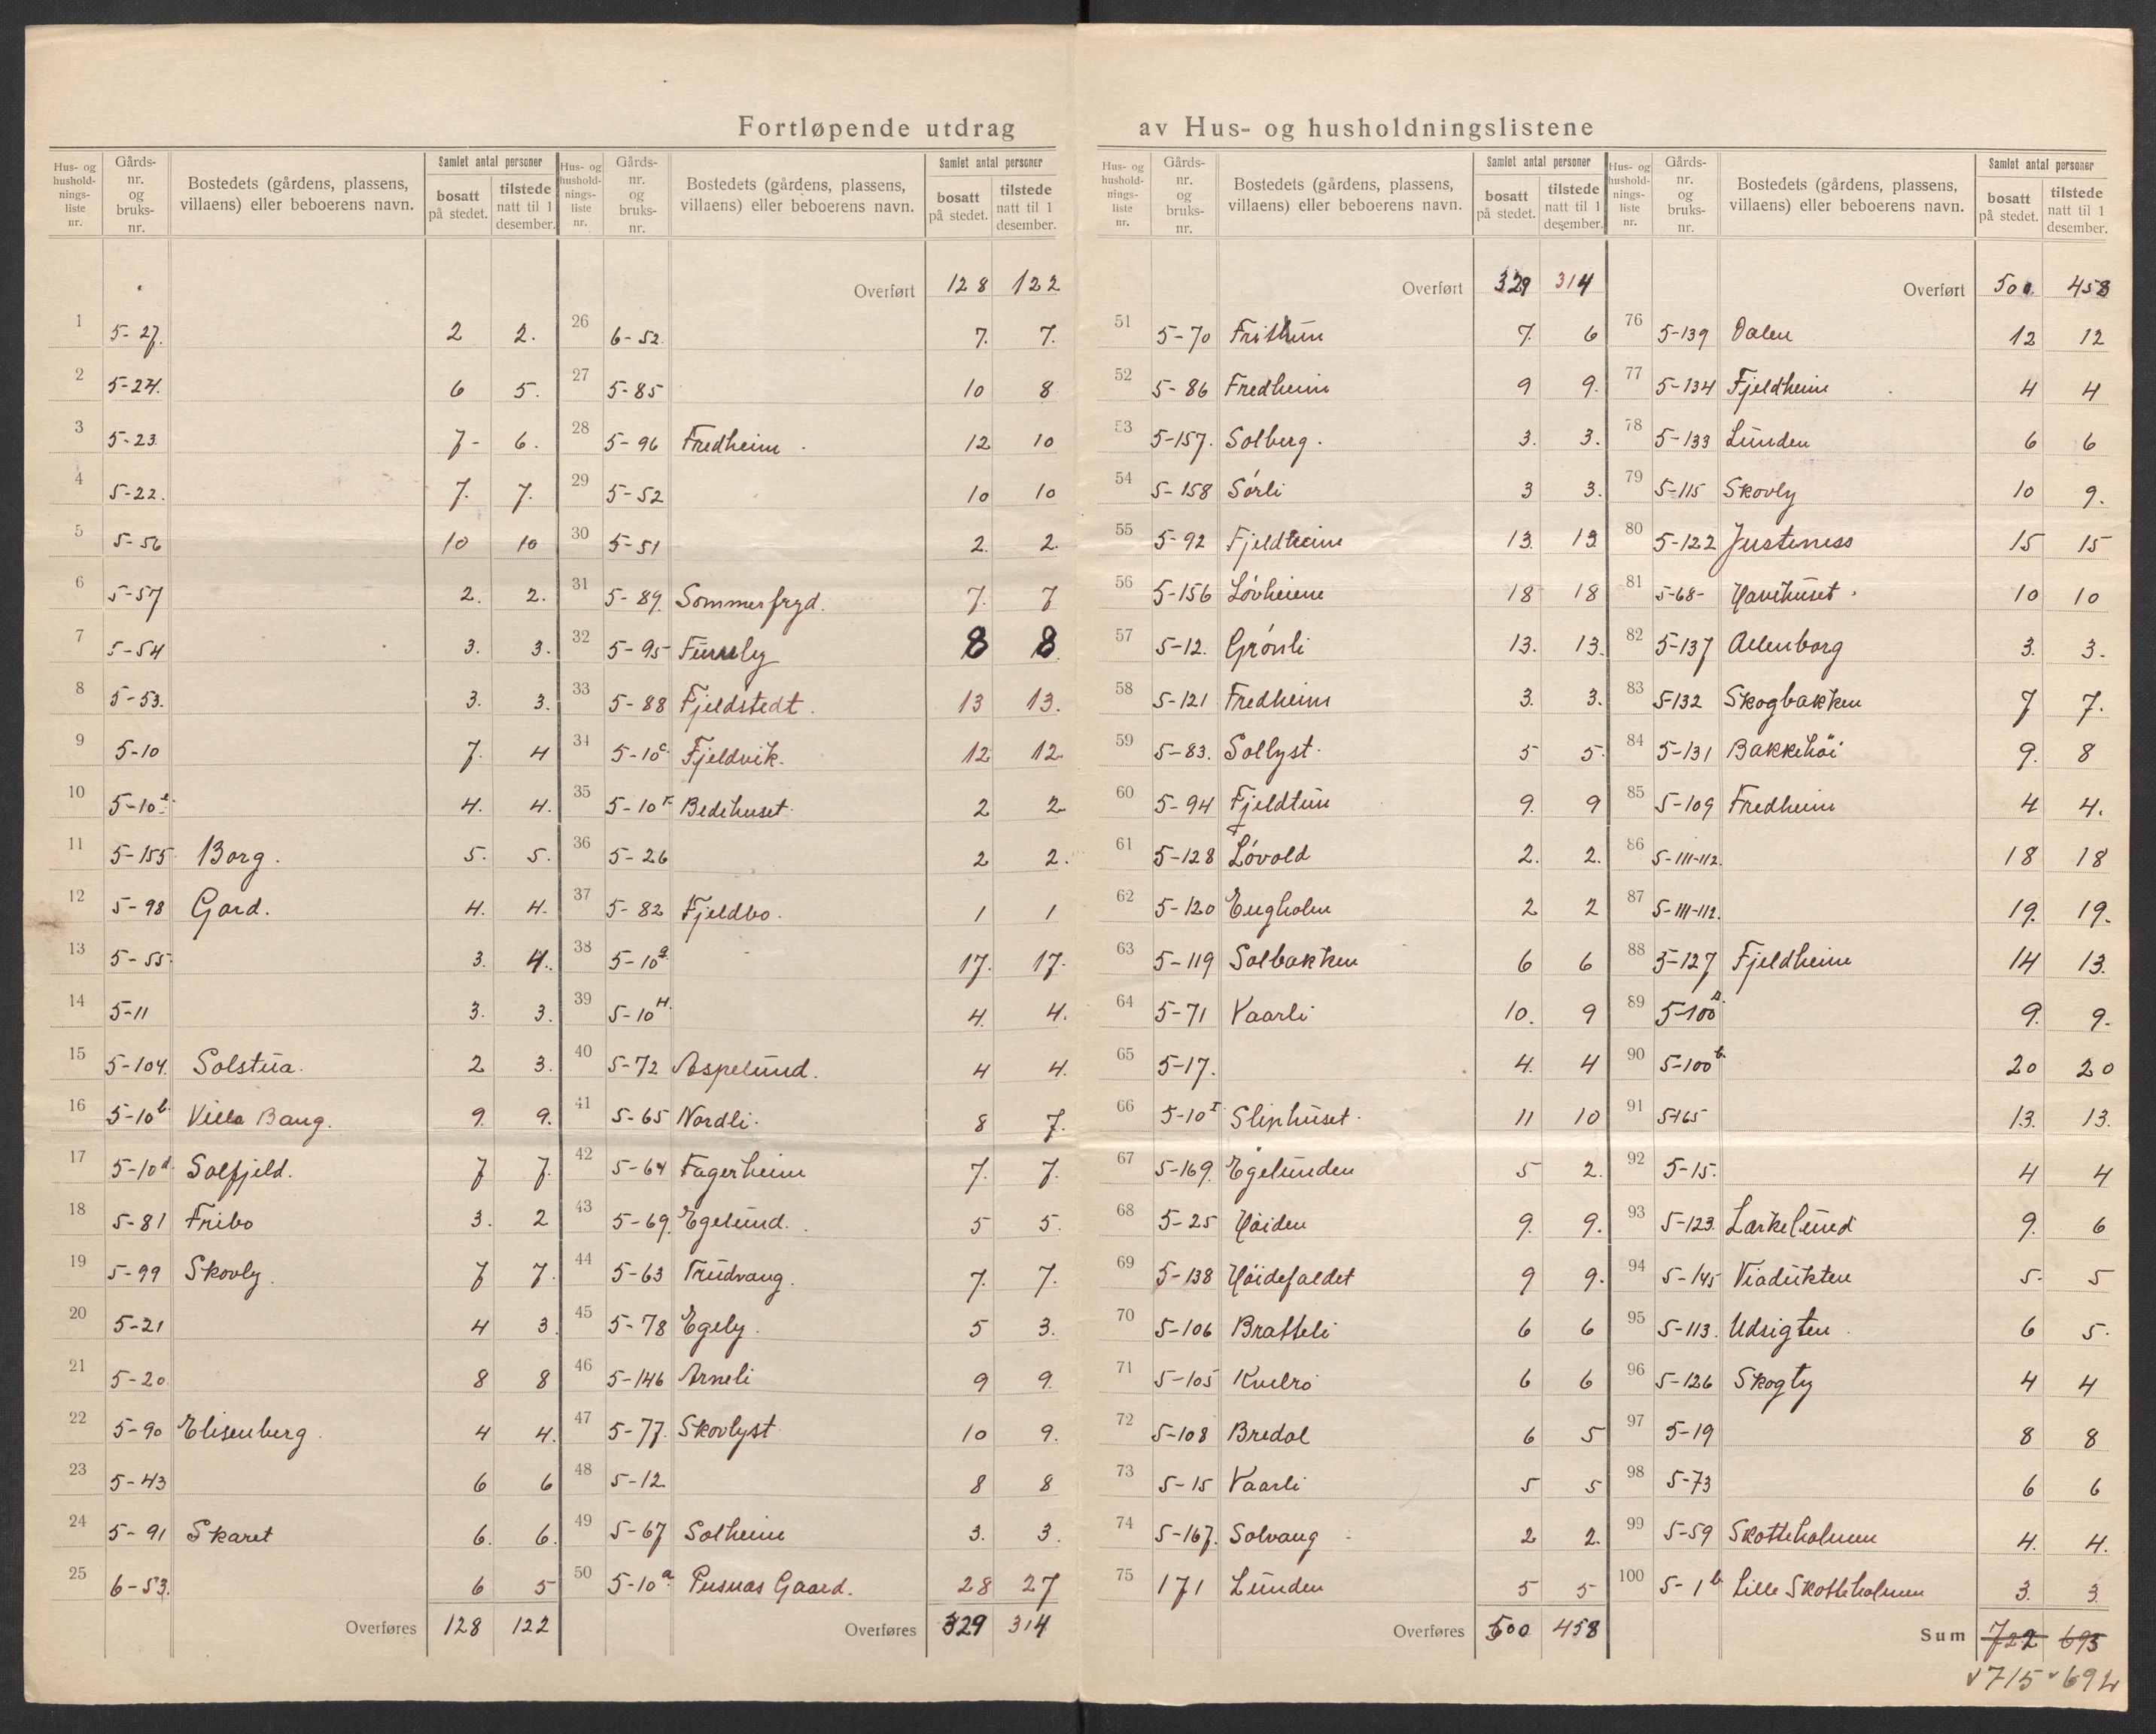 Fortløpende utdrag av Hus- og husholdningslistene
Hus- og husholdningsliste nr. | Gårds-nr. og bruks-nr. | Bostedets (gårdens, plassens, villaens) eller beboerens navn. | Samlet antal personer bosatt på stedet. | tilstede natt til 1 desember.
1 5-27. 2 2.
2 5-24. 6 5.
3 5-23 7- 6.
4 5-22. 7. 7.
5 5-56 10 10
6 5-57 2. 2.
7 5-54 3. 3.
8 5-53. 3. 3.
9 5-10 7. 4
10 5-10e. 4. 4.
11 5-155 Borg. 5. 5.
12 5-98 Gard. 4. 4.
13 5-55. 3. 4.
14 5-11 3. 3.
15 5-104. Solstua. 2 3.
16 5-10b. Villa Bang. 9. 9.
17 5-10d. Solfjeld. 7 7.
18 5-81 Fribo 3. 2
19 5-99 Skovly. 7 7.
20 5-21 4 3.
21 5-20 8 8
22 5-90 Elisenberg. 4 4.
23 5-43 6 6
24 5-91 Skaret 6. 6.
25 6-53. 6 5
Overføres 128 122
Hus- og husholdningsliste nr. | Gårds-nr. og bruks-nr. | Bostedets (gårdens, plassens, villaens) eller beboerens navn. | Samlet antal personer bosatt på stedet. | tilstede natt til 1 desember.
Overført 128 122
26 6-52. 7. 7.
27 5-85 10 8
28 5-96 Fredheim. 12 10
29 5-52 10 10
30 5-51 2. 2.
31 5-89. Sommerfryd. 7. 7
32 5-95 Furuly 8 8.
33 5-88 Fjeldstedt. 13 13.
34 5-10c. Fjeldvik. 12 12.
35 5-10F Bedehuset. 2 2.
36 5-26 2 2.
37 5-82 Fjeldbo. 1 1
38 5-10g. 17. 17.
39 5-10H. 4. 4.
40 5-72 Aspelund. 4 4.
41 5-65 Nordli. 8 7.
42 5-64 Fagerheim 7. 7.
43 5-69. Egelund. 5 5.
44 5-63 Trudvang. 7. 7.
45 5-78 Egely. 5 3.
46 5-146 Arneli 9 9.
47 5-77. Skovlyst 10 9.
48 5-12. 8 8
49 5-67 Solheim 3. 3.
50 5-10a. Pusnas Gaard. 28 27
Overføres 329 314
Hus- og husholdningsliste nr. | Gårds-nr. og bruks-nr. | Bostedets (gårdens, plassens, villaens) eller beboerens navn. | Samlet antal personer bosatt på stedet. | tilstede natt til 1 desember.
Overført 329 314
51 5-70 Frithun 7. 6
52 5-86 Fredheim 9 9.
53 5-157. Solberg. 3. 3.
54 5-158 Sörli 3 3.
55 5-92 Fjeldheim 13. 13
56 5-156 Lövheim 18 18
57 5-12. Grönli 13. 13.
58 5-121 Fredheim 3. 3.
59 5-83. Sollyst. 5 5.
60 5-94 Fjeldtun 9. 9
61 5-128 Lövold 2. 2.
62 5-120 Engholm 2 2
63 5-119 Solbakken 6 6
64 5-71 Vaarli 10. 9
65 5-17. 4. 4
66 5-10I Sliphuset. 11 10
67 5-169. Egelunden 5 2.
68 5-25 Höiden 9. 9.
69 5-138 Höidefaldet 9 9.
70 5-106 Bratteli 6 6
71 5-105 Kvelro 6 6
72 5-108 Bredal 6 5
73 5-15 Vaarli 5 5
74 5-167. Solvang 2 2.
75 171 Lunden 5 5
Overføres 500 458
Hus- og husholdningsliste nr. | Gårds-nr. og bruks-nr. | Bostedets (gårdens, plassens, villaens) eller beboerens navn. | Samlet antal personer bosatt på stedet. | tilstede natt til 1 desember.
Overført 500. 458
76 5-139 Dalen 12 12
77 5-134 Fjeldheim 4 4
78 5-133 Lunden 6 6
79 5-115 Skovly 10 9.
80 5-122 Justeness 15 15
81 5-68- Havehuset. 10 10
82 5-137 Allenborg 3. 3.
83 5-132 Skogbakken 7 7.
84 5-131 Bakkehöi 9. 8
85 5-109 Fredheim 4 4.
86 5-111-112. 18 18
87 5-111-112. 19. 19.
88 5-127 Fjeldheim 14 13.
89 5-100a. 9. 9.
90 5-100b. 20 20
91 5-165 13. 13.
92 5-15. 4 4
93 5-123. Lærkelund 9. 6
94 5-145 Viadukten 5. 5
95 5-113. Udsigten 6 5.
96 5-126 Skogly 4 4
97 5-19 8 8
98 5-73 6 6
99 5-59 Skotteholmen 4. 4.
100 5-1b. Lille Skotteholmen 3. 3.
Sum 722 693
v 715 v 692